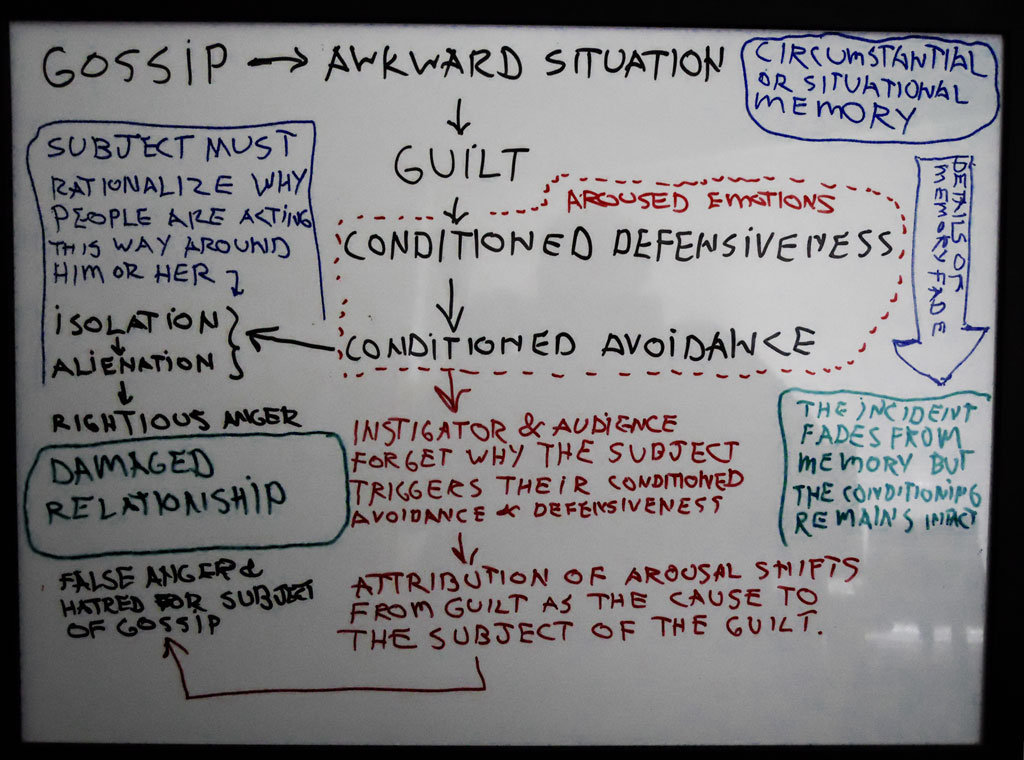 GOSSIP → AWKWARD SITUATION
↓
GUILT
↓
AROUSED EMOTIONS
CONDITIONED DEFENSIVENESS
↓
CONDITIONED AVOIDANCE
CIRCUMSTANTIAL
OR SITUATIONAL
MEMORY
DETAILS OF
MEMORY FADE
THE INCIDENT
FADES FROM
MEMORY BUT
THE CONDITIONING
REMAINS INTACT
SUBJECT MUST
RATIONALIZE WHY
PEOPLE ARE ACTING
THIS WAY AROUND
HIM OR HER
ISOLATION
↓
ALIENATION
↓
RIGHTIOUS ANGER
DAMAGED
RELATIONSHIP
FALSE ANGER &
HATRED FOR SUBJECT
OF GOSSIP
INSTIGATOR & AUDIENCE
FORGET WHY THE SUBJECT
TRIGGERS THEIR CONDITIONED
AVOIDANCE & DEFENSIVENESS
↓
ATTRIBUTION OF AROUSAL SHIFTS
FROM GUILT AS THE CAUSE TO
THE SUBJECT OF THE GUILT.